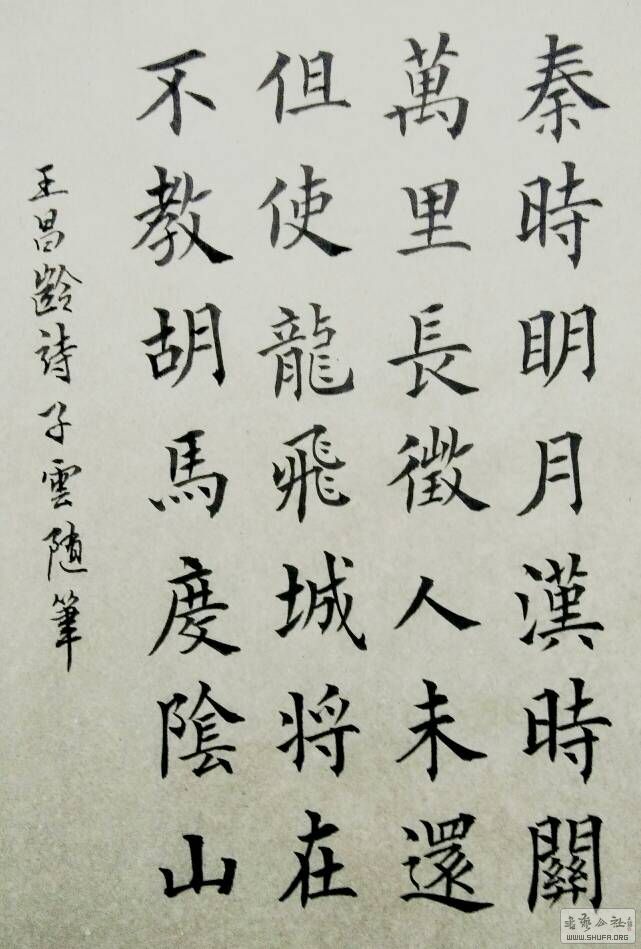 秦時明月漢時關
萬里長徵人未還
但使龍飛城將在
不教胡馬慶陰山
王昌齡詩子雲随筆
WWW.SHUFA.ORG